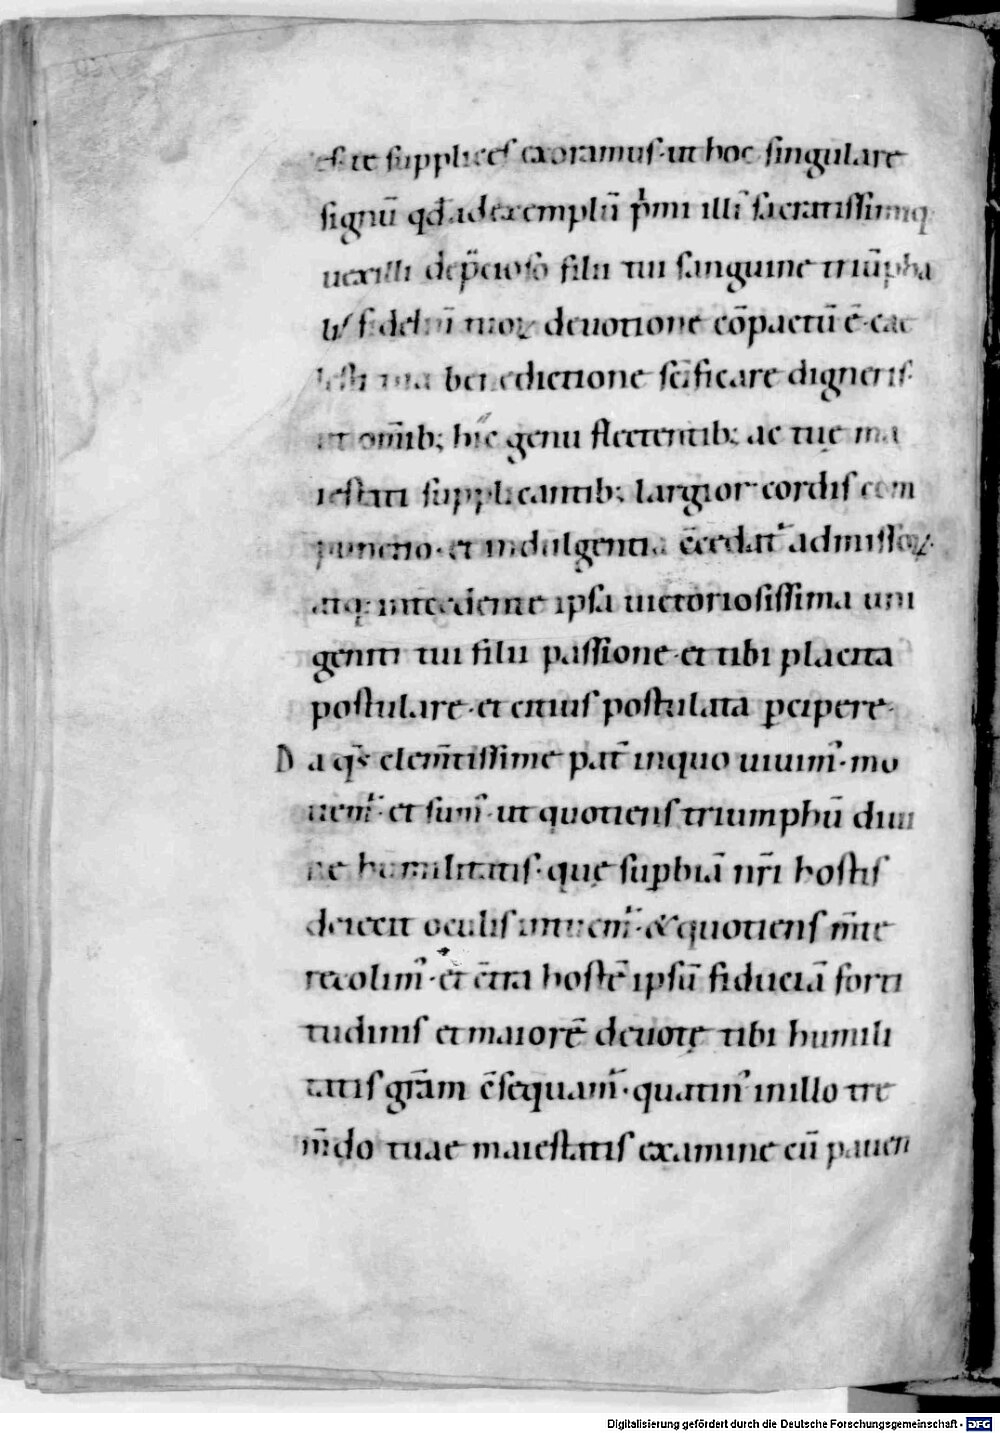 es te supplices exoramus· ut hoc singulare
signū qđ ad exemplū pͥmi illiꝰ sacratissimiq
uexilli de p̄cioso filii tui sanguine triūpha
lis fideliū tuoꝝ deuotione cōpactū ē· cae
lesti tua benedictione scīficare digneris·
et omīb; hic genu flectentib; ac tuę ma
iestati supplicantib; largior cordis com
punctio· et indulgentia c̄cedatᷣ admissoꝝ·
atq; intercedente ipsa uictoriosissima uni
geniti tui filii passione· et tibi placita
postulare· et citius postulata ꝑcipere·
Da q̄s clem̄tissime pat̄ in quo uiuimꝰ· mo
uemᷣ· et sumꝰ· ut quotiens triumphū diui
ne humilitatis· quę suꝑbiā nr̄i hostis
deiecit oculis intuemᷣ· & quotiens m̄te
recolimꝰ· et c̄tra hostē ipsū fiduciā forti
tudinis et maiorē deuotę tibi humili
tatis gr̄am c̄sequamᷣ· quatinꝰ in illo tre
m̄do tuae maiestatis examine cū pauen